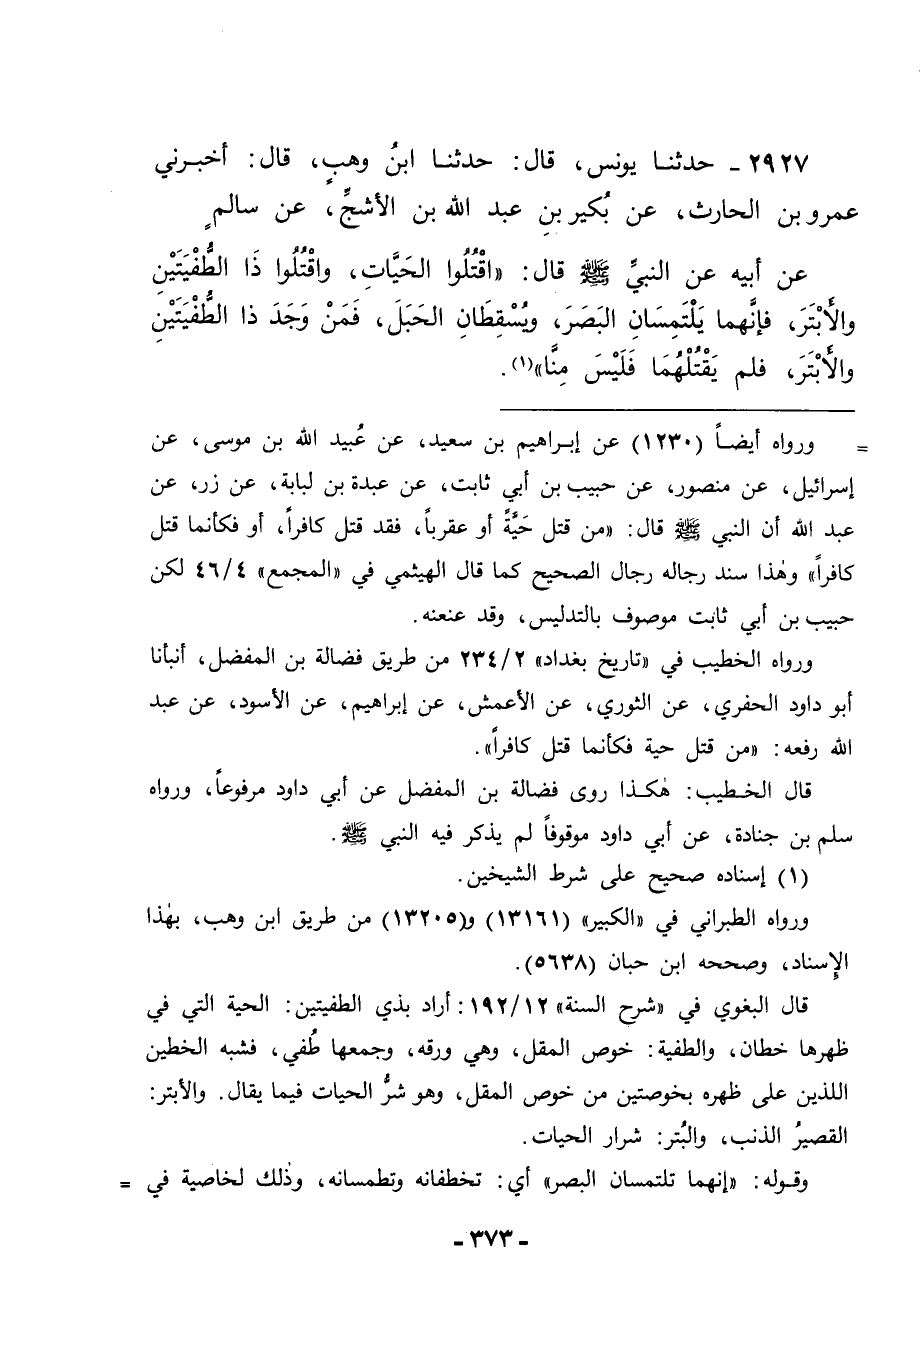 ٢٩٢٧ ـ حدثنـا يونس، قال: حدثنـا ابنُ وهبٍ، قال: أخبـرني
عمرو بن الحارث، عن بُكير بنِ عبد الله بن الأشجِّ، عن سالمٍ
عن أبيه عن النبيِّ ﷺ قال: «اقْتُلُوا الحَيَّاتِ، واقْتُلُوا ذَا الطُّفْيَتَيْنِ
والأَبْتَرَ، فإنَّهما يَلْتَمِسَانِ البَصَرَ، ويُسْقِطَانِ الحَبَلَ، فَمَنْ وَجَدَ ذا الطُّفْيَتَيْنِ
والأَبْتَرَ، فلم يَقْتُلْهُمَا فَلَيْسَ مِنَّا»(١).
= ورواه أيضـاً (١٢٣٠) عن إبـراهيم بن سعيد، عن عُبيد الله بن موسى، عن
إسرائيل، عن منصور، عن حبيب بن أبي ثابت، عن عبدة بن لبابة، عن زر، عن
عبد الله أن النبي ﷺ قال: «من قتل حَيَّةً أو عقرباً، فقد قتل كافراً، أو فكأنما قتل
كافراً» وهٰذا سند رجاله رجال الصحيح كما قال الهيثمي في «المجمع» ٤٦/٤ لكن
حبيب بن أبي ثابت موصوف بالتدليس، وقد عنعنه.
ورواه الخطيب في «تاريخ بغداد» ٢٣٤/٢ من طريق فضالة بن المفضل، أنبأنا
أبو داود الحفري، عن الثوري، عن الأعمش، عن إبراهيم، عن الأسود، عن عبد
الله رفعه: «من قتل حية فكأنما قتل كافراً».
قال الخـطيب: هٰكـذا روى فضالة بن المفضل عن أبي داود مرفوعاً، ورواه
سلم بن جنادة، عن أبي داود موقوفاً لم يذكر فيه النبي ﷺ.
(١) إسناده صحيح على شرط الشيخين.
ورواه الطبراني في «الكبير» (١٣١٦١) و(١٣٢٠٥) من طريق ابن وهب، بهٰذا
الإِسناد، وصححه ابن حبان (٥٦٣٨).
قال البغوي في «شرح السنة» ١٩٢/١٢: أراد بذي الطفيتين: الحية التي في
ظهرها خطان، والطفية: خوص المقل، وهي ورقه، وجمعها طُفي، فشبه الخطين
اللذين على ظهره بخوصتين من خوص المقل، وهو شرُّ الحيات فيما يقال. والأبتر:
القصيرُ الذنب، والبُتر: شرار الحيات.
وقـوله: «إنهما تلتمسان البصر» أي: تخطفانه وتطمسانه، وذٰلك لخاصية في =
ـ ٣٧٣ ـ